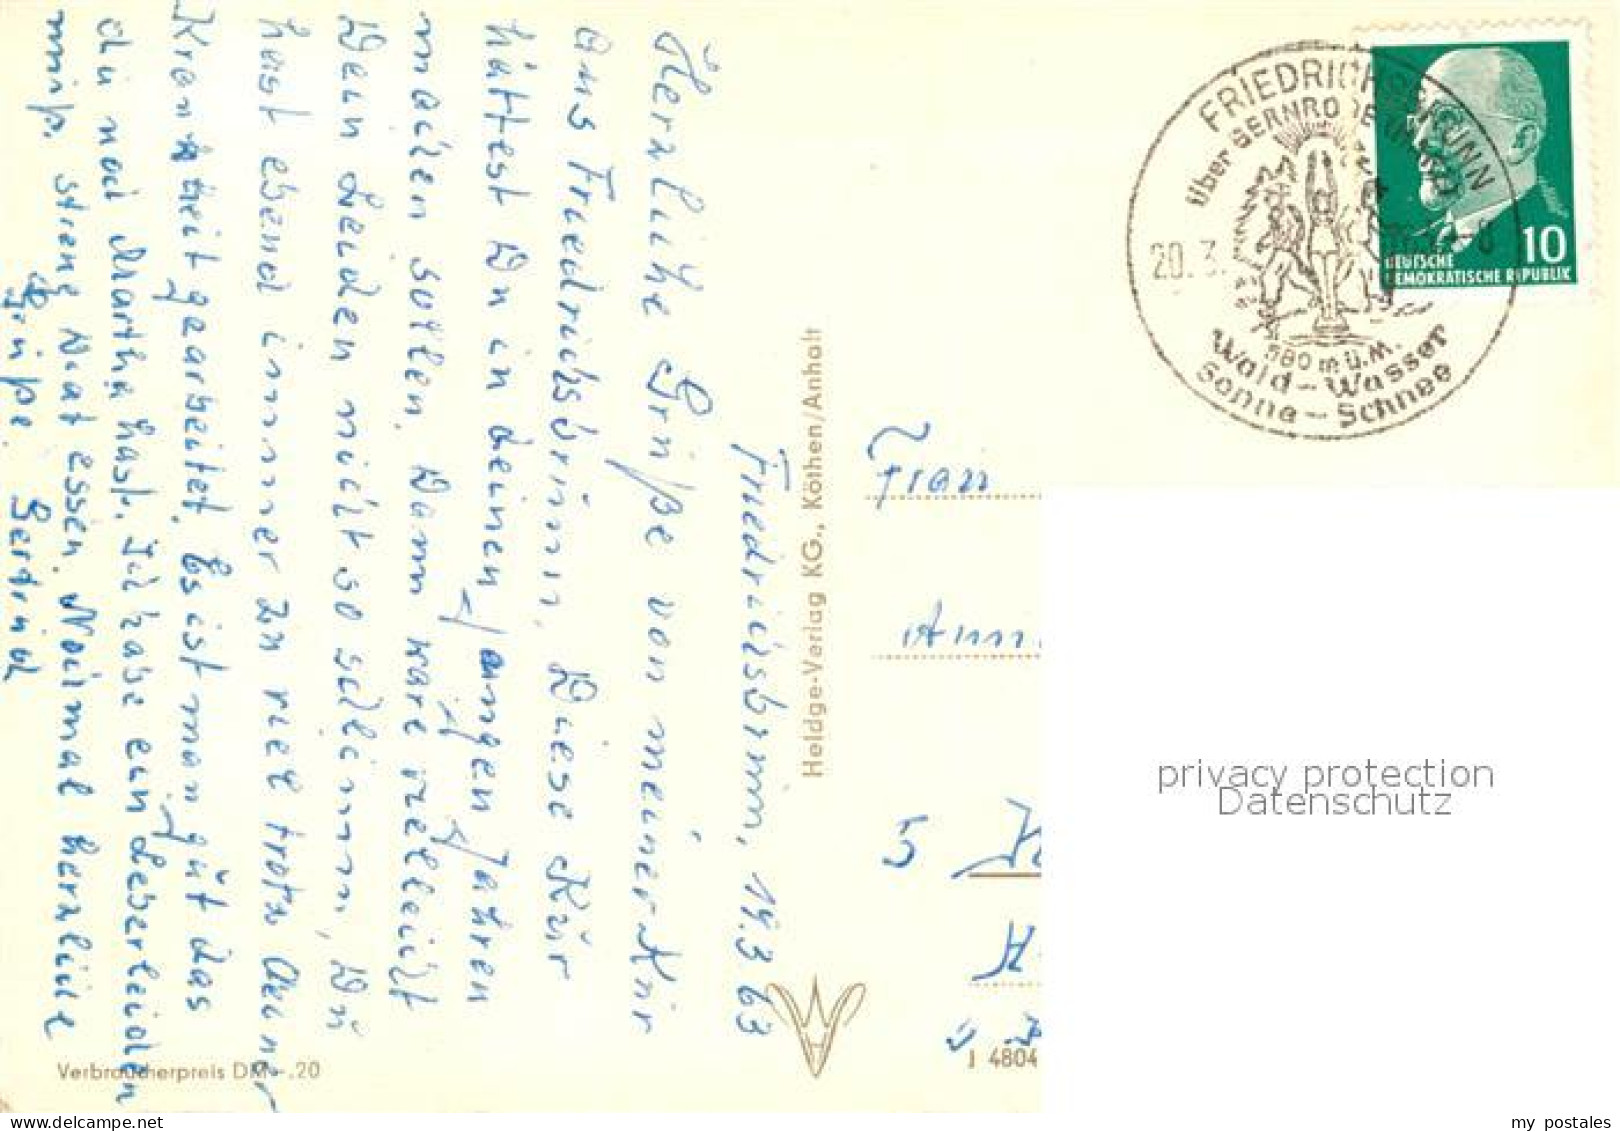 Friedrichsbrunn, 19.3.63
Herzliche Grüße von meiner Kur
aus Friedrichsbrunn. Diese Kur
hättest Du in deinen jungen Jahren
machen sollen. Dann wäre vielleicht
Dein Leiden nicht so schlimm. Du
hast eben immer zu viel trotz deiner
Krankheit gearbeitet. Es ist man gut das
du noch Martha hast. Ich habe ein Leberleiden
muß streng Diät essen. Nochmal herzliche
Grüße. Gertrud
Verbraucherpreis DM -.20
Heldge-Verlag KG., Köthen/Anhalt
FRIEDRICHSBRUNN
über BERNRODE
20.3.
580 m ü. M.
Wald - Wasser
Sonne - Schnee
10
DEUTSCHE
DEMOKRATISCHE REPUBLIK
Frau
Ann
5
J 4804
privacy protection
Datenschutz
my postales